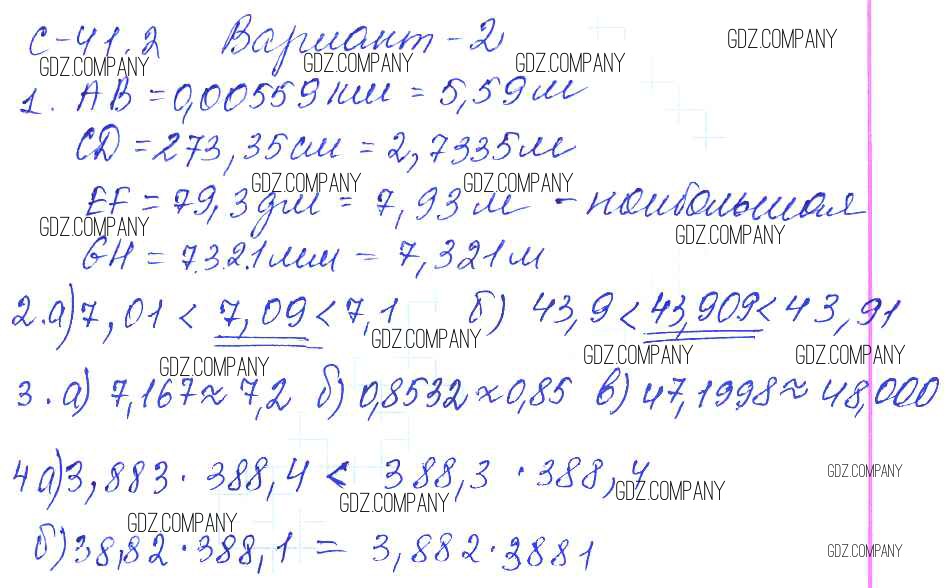 С-41.2 Вариант-2
GDZ.COMPANY GDZ.COMPANY GDZ.COMPANY GDZ.COMPANY
1. AB = 0,00559 км = 5,59 м
CD = 273,35 см = 2,7335 м
GDZ.COMPANY GDZ.COMPANY
EF = 79,3 дм = 7,93 м - наибольшая
GDZ.COMPANY GDZ.COMPANY
GH = 7321 мм = 7,321 м
2. а) 7,01 < 7,09 < 7,1 б) 43,9 < 43,909 < 43,91
GDZ.COMPANY GDZ.COMPANY GDZ.COMPANY GDZ.COMPANY
3. а) 7,167 ≈ 7,2 б) 0,8532 ≈ 0,85 в) 47,1998 ≈ 48,000
4 а) 3,883 · 388,4 < 388,3 · 388,4
GDZ.COMPANY GDZ.COMPANY GDZ.COMPANY
GDZ.COMPANY
б) 38,82 · 388,1 = 3,882 · 3881
GDZ.COMPANY